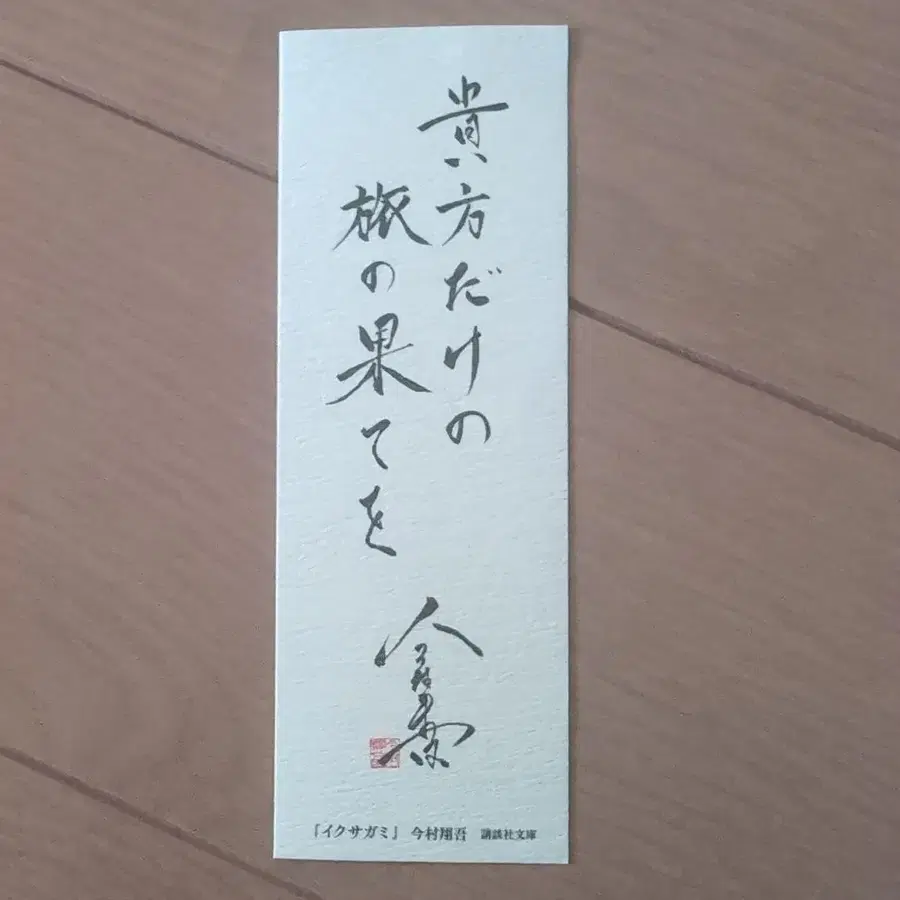 貴方だけの
旅の果てを
『イクサガミ』 今村翔吾 講談社文庫